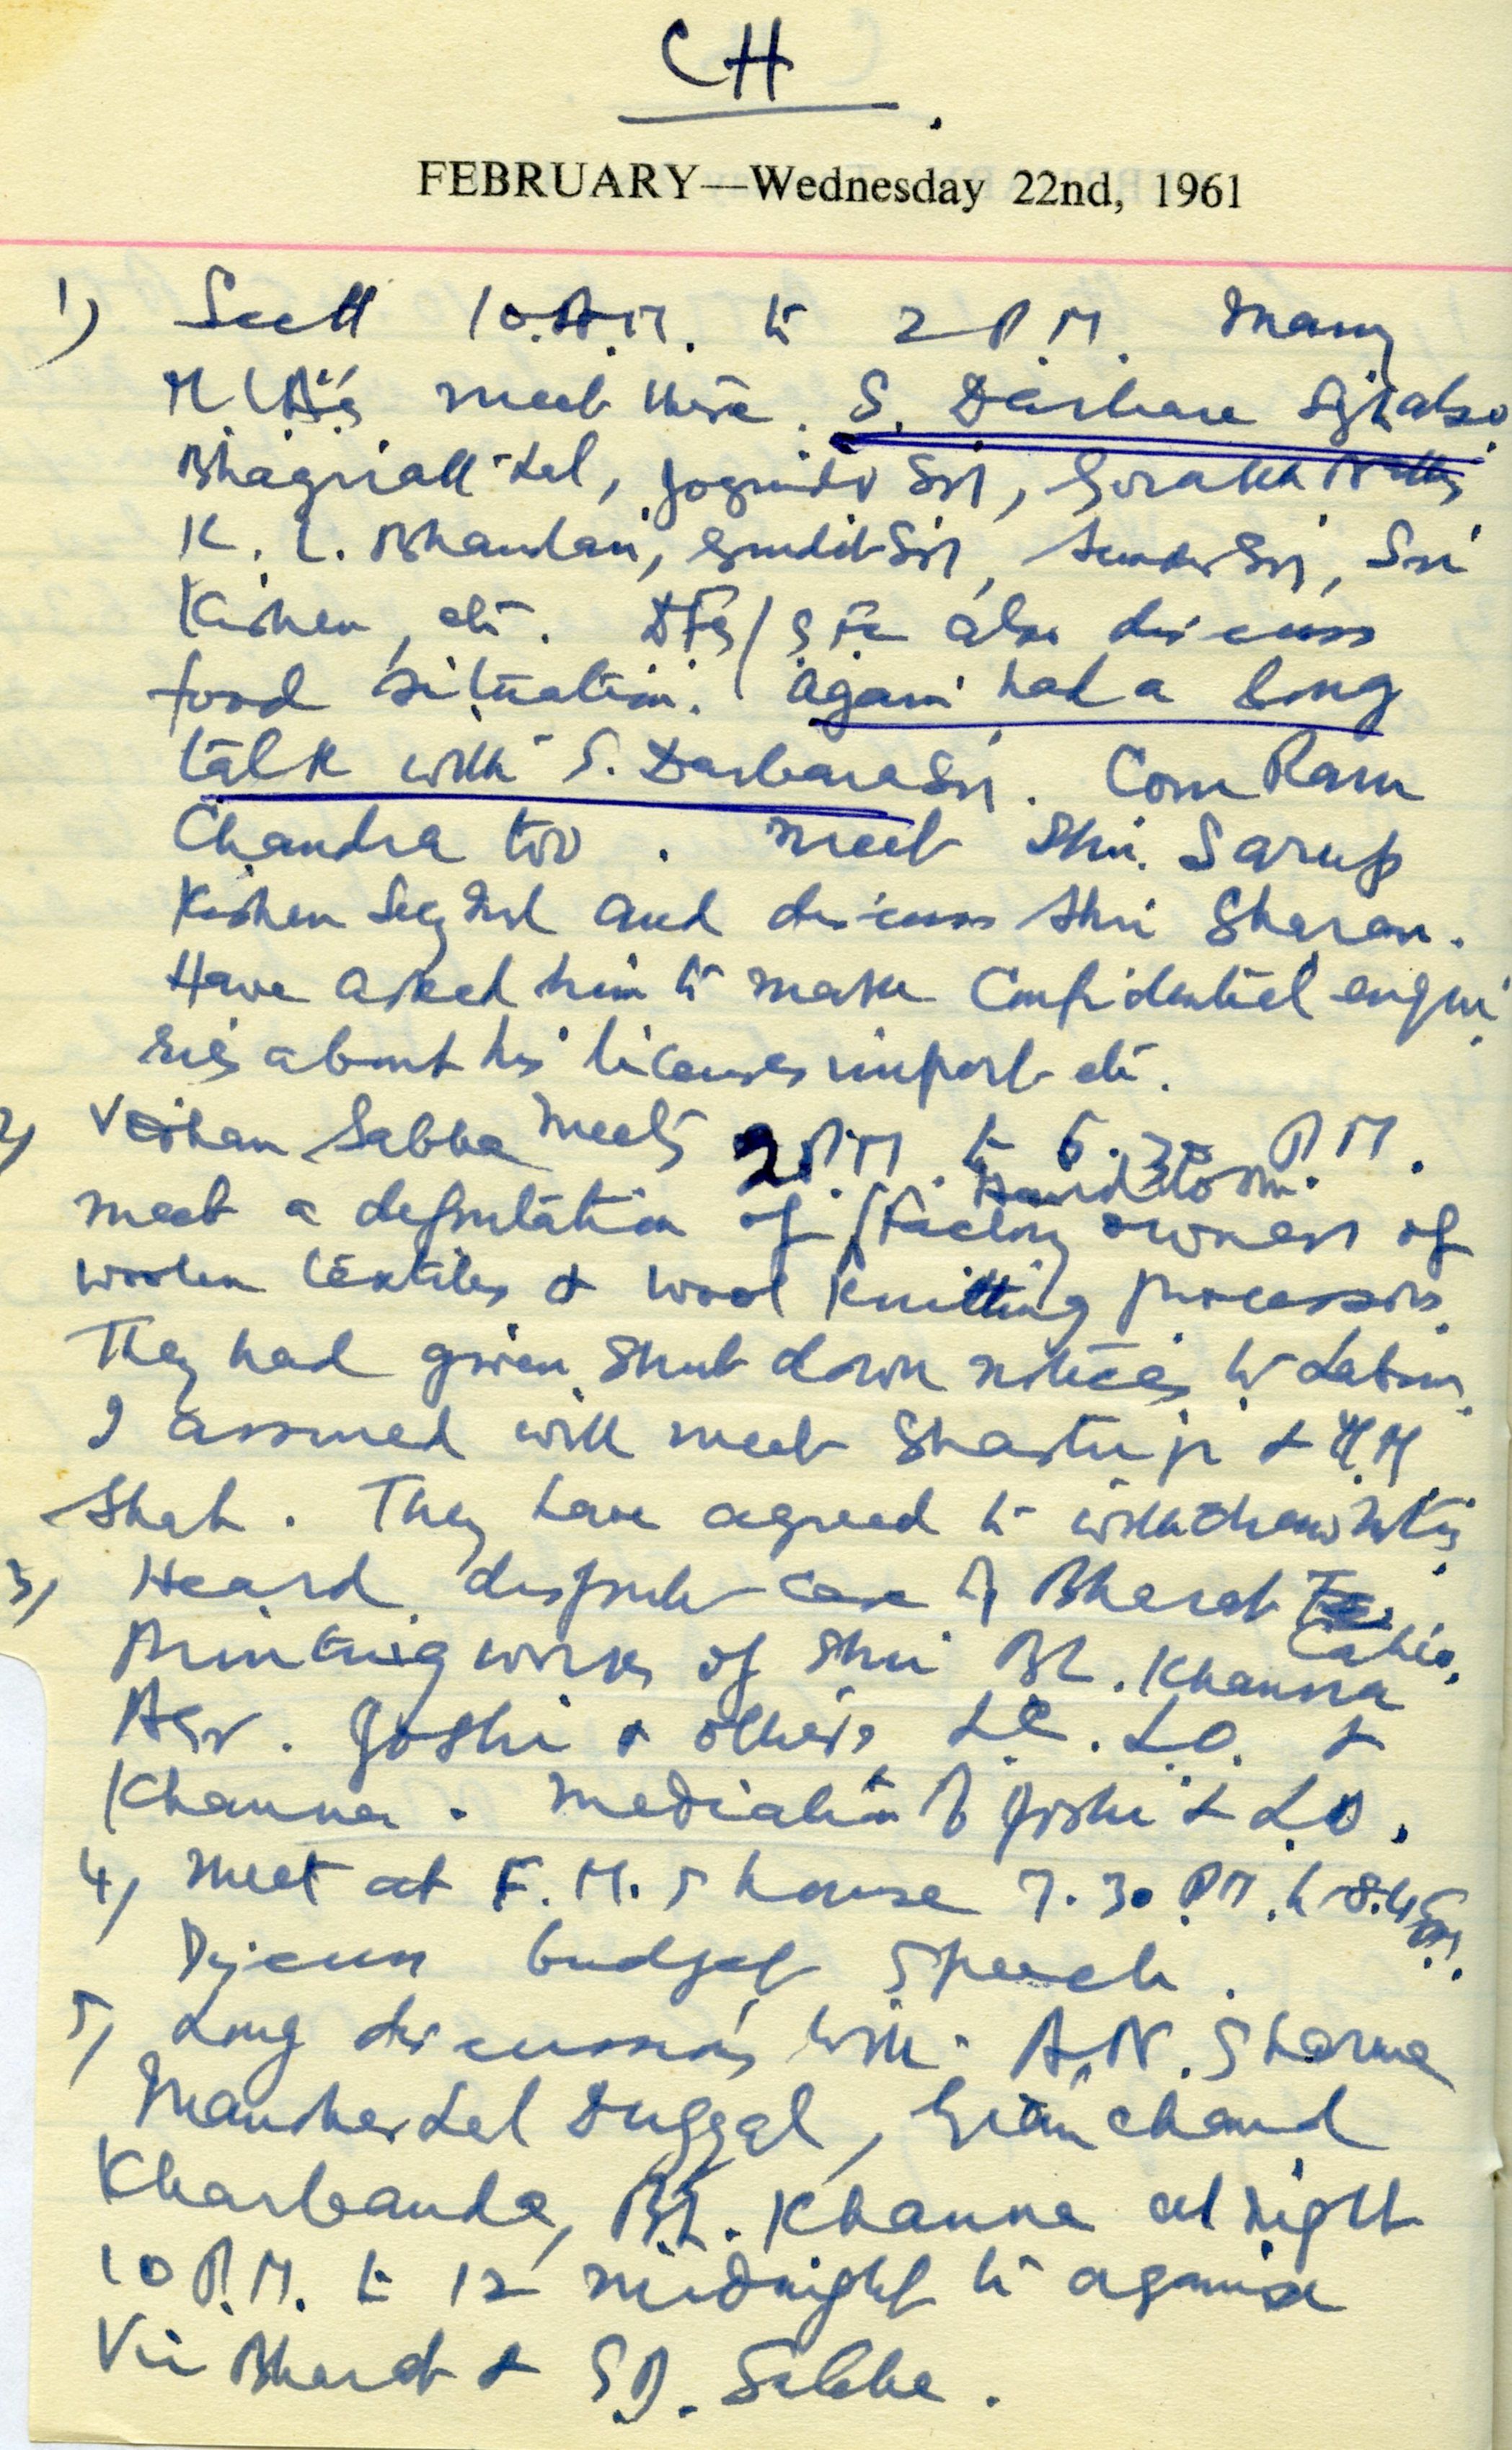 CH
FEBRUARY—Wednesday 22nd, 1961
1) Sectt 10.A.M. to 2 P.M. Many
M.L.A's meet there. S. Darbara Sgh also.
Bhagirath Lal, Joginder Sgh, Gorakh Nath,
K. L. Bhandari, Gurdit Sgh, Sunder Sgh, Sri
Kishen, etc. also discuss
food situation. Again had a long
talk with S. Darbara Sgh. Com Ram
Chandra too. Meet Shri. Sarup
Kishen and discuss Shri Sharan.
Have asked him to make Confidential enqui
ries about his licenses import etc.
2) Vidhan Sabha meets 2 P.M. to 6.30 P.M.
Handloom
meet a deputation of factory owners of
woolen textiles & wool knitting processors.
They had given shut down notices to Labour.
I assured will meet Shastri ji & M M
Shah. They have agreed to withdraw notices
3) Heard dispute case of Bharat
Calico.
Printing works of Shri BL. Khanna
Agr. Joshi & others L.C. L.O. &
Khanna. Mediation of Joshi & L.O.
4) Meet at F.M.s house 7.30 P.M. to 8.45 P.M.
Discuss budget speech.
5) Long discussions with A.N. Sharma
Manohar Lal Duggal, Gian Chand
Kharbanda, BL. Khanna at night
10 P.M. to 12 midnight to organise
Vir Bharat & S.D. Sabha.